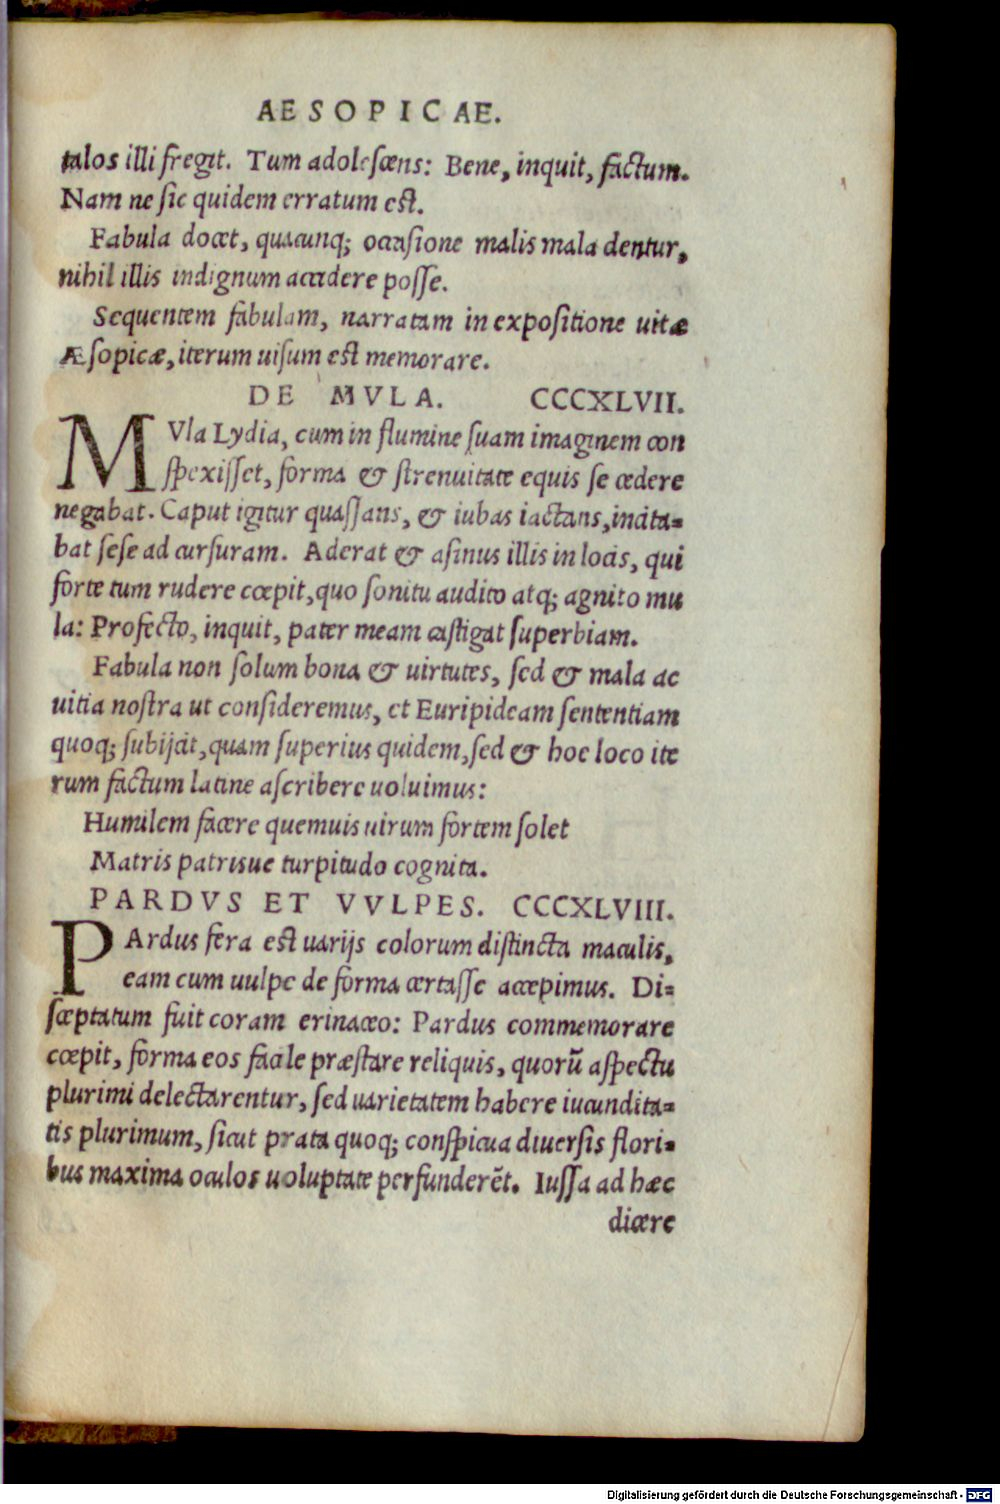 AESOPICAE.
talos illi fregit. Tum adolescens: Bene, inquit, factum.
Nam ne sic quidem erratum est.
Fabula docet, quacunq; occasione malis mala dentur,
nihil illis indignum accidere posse.
Sequentem fabulam, narratam in expositione uitæ
Æsopicæ, iterum uisum est memorare.
DE MVLA. CCCXLVII.
MVla Lydia, cum in flumine suam imaginem con
spexisset, forma & strenuitate equis se cedere
negabat. Caput igitur quassans, & iubas iactans, incita-
bat sese ad cursuram. Aderat & asinus illis in locis, qui
forte tum rudere cœpit, quo sonitu audito atq; agnito mu
la: Profecto, inquit, pater meam castigat superbiam.
Fabula non solum bona & uirtutes, sed & mala ac
uitia nostra ut consideremus, et Euripideam sententiam
quoq; subijcit, quam superius quidem, sed & hoc loco ite
rum factum latine ascribere uoluimus:
Humilem facere quemuis uirum fortem solet
Matris patrisue turpitudo cognita.
PARDVS ET VVLPES. CCCXLVIII.
PArdus fera est uarijs colorum distincta maculis,
eam cum uulpe de forma certasse accepimus. Di-
sceptatum fuit coram erinaceo: Pardus commemorare
cœpit, forma eos facile præstare reliquis, quorũ aspectu
plurimi delectarentur, sed uarietatem habere iucundita-
tis plurimum, sicut prata quoq; conspicua diuersis flori-
bus maxima oculos uoluptate perfunderẽt. Iussa ad hæc
dicere
Digitalisierung gefördert durch die Deutsche Forschungsgemeinschaft - DFG